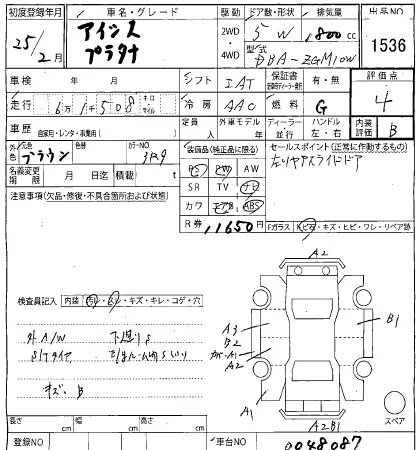 初度登録年月 車名・グレード 駆動 ドア数・形状 排気量 出品NO
25/2月 アイシス プラタナ 2WD・4WD 5 W 1800cc 1536
型式 DBA-ZGM10W
車検 年 月 シフト IAT 保証書 有・無 評価点
走行 6万1千508 キロ マイル 冷房 AAC 燃料 G 4
車歴 自家用・レンタ・事業用( ) 定員 人 外車モデル 年 ディーラー 並行 ハンドル 左・右 内装評価 B
外色 元色 ブラウン 色替 カラーNO 3R9
装備品(純正品に限る) セールスポイント(正常に作動するもの)
左リヤアスライドドア
名義変更期限 月 日迄 積載( )
PS PW AW
SR TV ナビ
カワ エアB ABS
注意事項(欠品・修復・不具合箇所および状態)
R券 11650円 Fガラス Kヒ石・キズ・ヒビ・ワレ・リペア跡
A2
検査員記入 内装 汚レ・スレ・キズ・キレ・コゲ・穴
外 A/W 下廻りS
S/Tタイヤ
キズ、B
A3
B2
A1
A2
B1
A1
A2B1
スペア
長さ cm 幅 cm 高さ cm
登録NO 車台NO 0048087